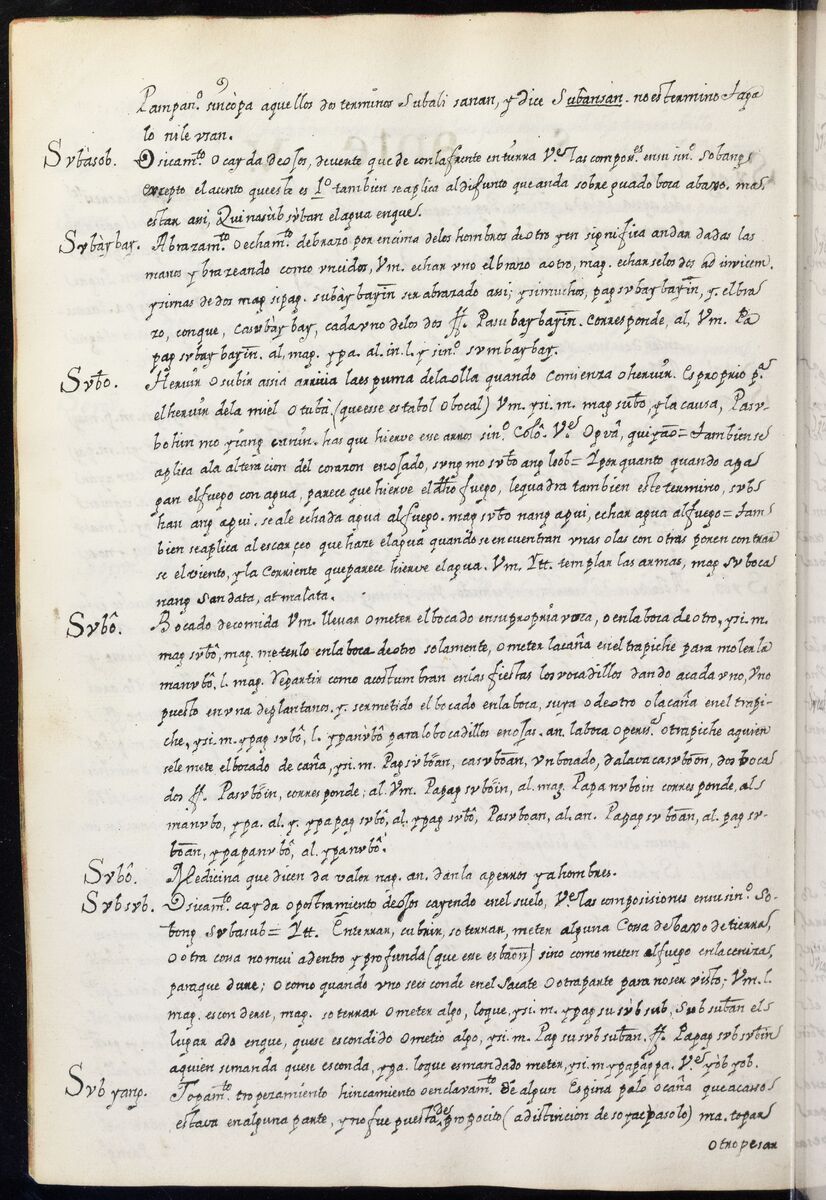 Pampan.º sincòpa aquellos dos terminos Subali sanan, y dice Subansan. no es termino taga
lo ni le vsan.
Svbàsob. Osicam.to o cayda de osos, de uente que de con la frente en tierra V.e las compon.es en su sin.º Sobang
excepto el acento que este es 1.º tambien se aplica al difunto que anda sobre guado boca abaxo. ma
estar asi, Qui nasùb sùban el agua en que.
Svbày bay. Abrazam.to o echam.to de brazo por encima de los hombros de otro y en significa andar dadas las
manos y brazeando como vncidos, Vm. echar vno el brazo a otro, mag. echarselos dos ad invicem.
y si mas de dos mag sipag. subày bayin ser abrazado assi; y si muchos, pag svbay bayin, y. el bra
zo, con que, casvbày bay, cada vno de los dos ff. Pasu bay bayin. corresponde, al, Vm. Pa
pag svbay bayin. al, mag. ypa. al. in. l. y sin.º svmbaybay.
Svbo. Hervir o subir assia arriua la espuma de la olla quando comienza o hervir. Es proprio p.a
el hervir de la miel o tubà, (que esse es tabol o bocal) Vm. y si. m. mag subo, y la causa, Pasv-
bohin mo yiang canin. haz que hierve ese arros sin.º Colô. V.e Opvâ, quiyào = tambien se
aplica a la alteracion del corazon enojado, svng mo svbo ang loob = Y por quanto quando apa
gan el fuego con agua, parece que hierve el dho fuego, le quadra tambien este termino, svb
han ang apui. se ale echada agua al fuego. mag svbo nang apui, echar agua al fuego = tam
bien se aplica al escarceo que haze el agua quando se encuentran vnas olas con otras por encontrar
se el viento, y la corriente que parece hierve el agua. Vm. Ytt. templar las armas, mag svboca
nang sandata, at malata.
Svbô. Bocado de comida Vm. llevar o meter el bocado en su propria voca, o en la boca de otro, y si. m.
mag svbô, mag. meterlo en la boca de otro solamente, o meter la caña en el trapiche para molerla
manvbô, l. mag. repartir como acostumbran en las fiestas los vocadillos dando a cada vno, Vno
puesto en vna de plantanos. y. ser metido el bocado en la boca, suya o de otro o la caña en el trapi-
che, y si. m. y pag svbô, l. y panvbô para lo bocadillos en ojas. an. la boca o pers.a o trapiche a quien
se le mete el bocado de caña, y si. m. Pag svbôan, casvbôan, vn bocado, dalava casvbôan, dos voca
dos ff. Pasvbôin, corresponde; al. Vm. Papag svbôin, al. mag. Papanvboin corresponde, al
manvbo, ypa. al. y. ypapag svbô, al. ypag svbô, Pasvboan, al. an. Papag svbôan, al. pag sv-
bôan, ypapanvbô, al. ypanvbô.
Svbô. Medicina que dicen da valor nag. an. danla a perros y a hombres.
Svbsvb. Osicam.to cayda o postramiento de osos cayendo en el suelo, V.e las composisiones en su sin.º So-
bong svbasub = Ytt. Enterrar, cubrir, soterrar, meter alguna cosa debaxo de tierra,
o otra cosa no mui adentro y profunda (que ese es baon) sino como meten al fuego en la ceniza,
para que dure; o como quando vno se esconde en el sacate o otra parte para no ser visto; Vm. l.
mag. esconderse, mag. soterrar o meter algo, lo que, y si. m. ypag su svb sub, Svb suban el
lugar ado en que, que se escondio o metio algo, y si. m. Pag su svb suban. ff. Papag svb svbin
a quien se manda que se esconda, ypa. lo que es mandado meter, y si. m ypapagpa. V.e yòb yob.
Svb yang. Topam.to tropezamiento hincamiento o enclavam.to de algun Espina palo o caña que acaso
estava en alguna parte, y no fue puesta de proposito (a distincion de soyac pasolo) ma. topar
o tropesar